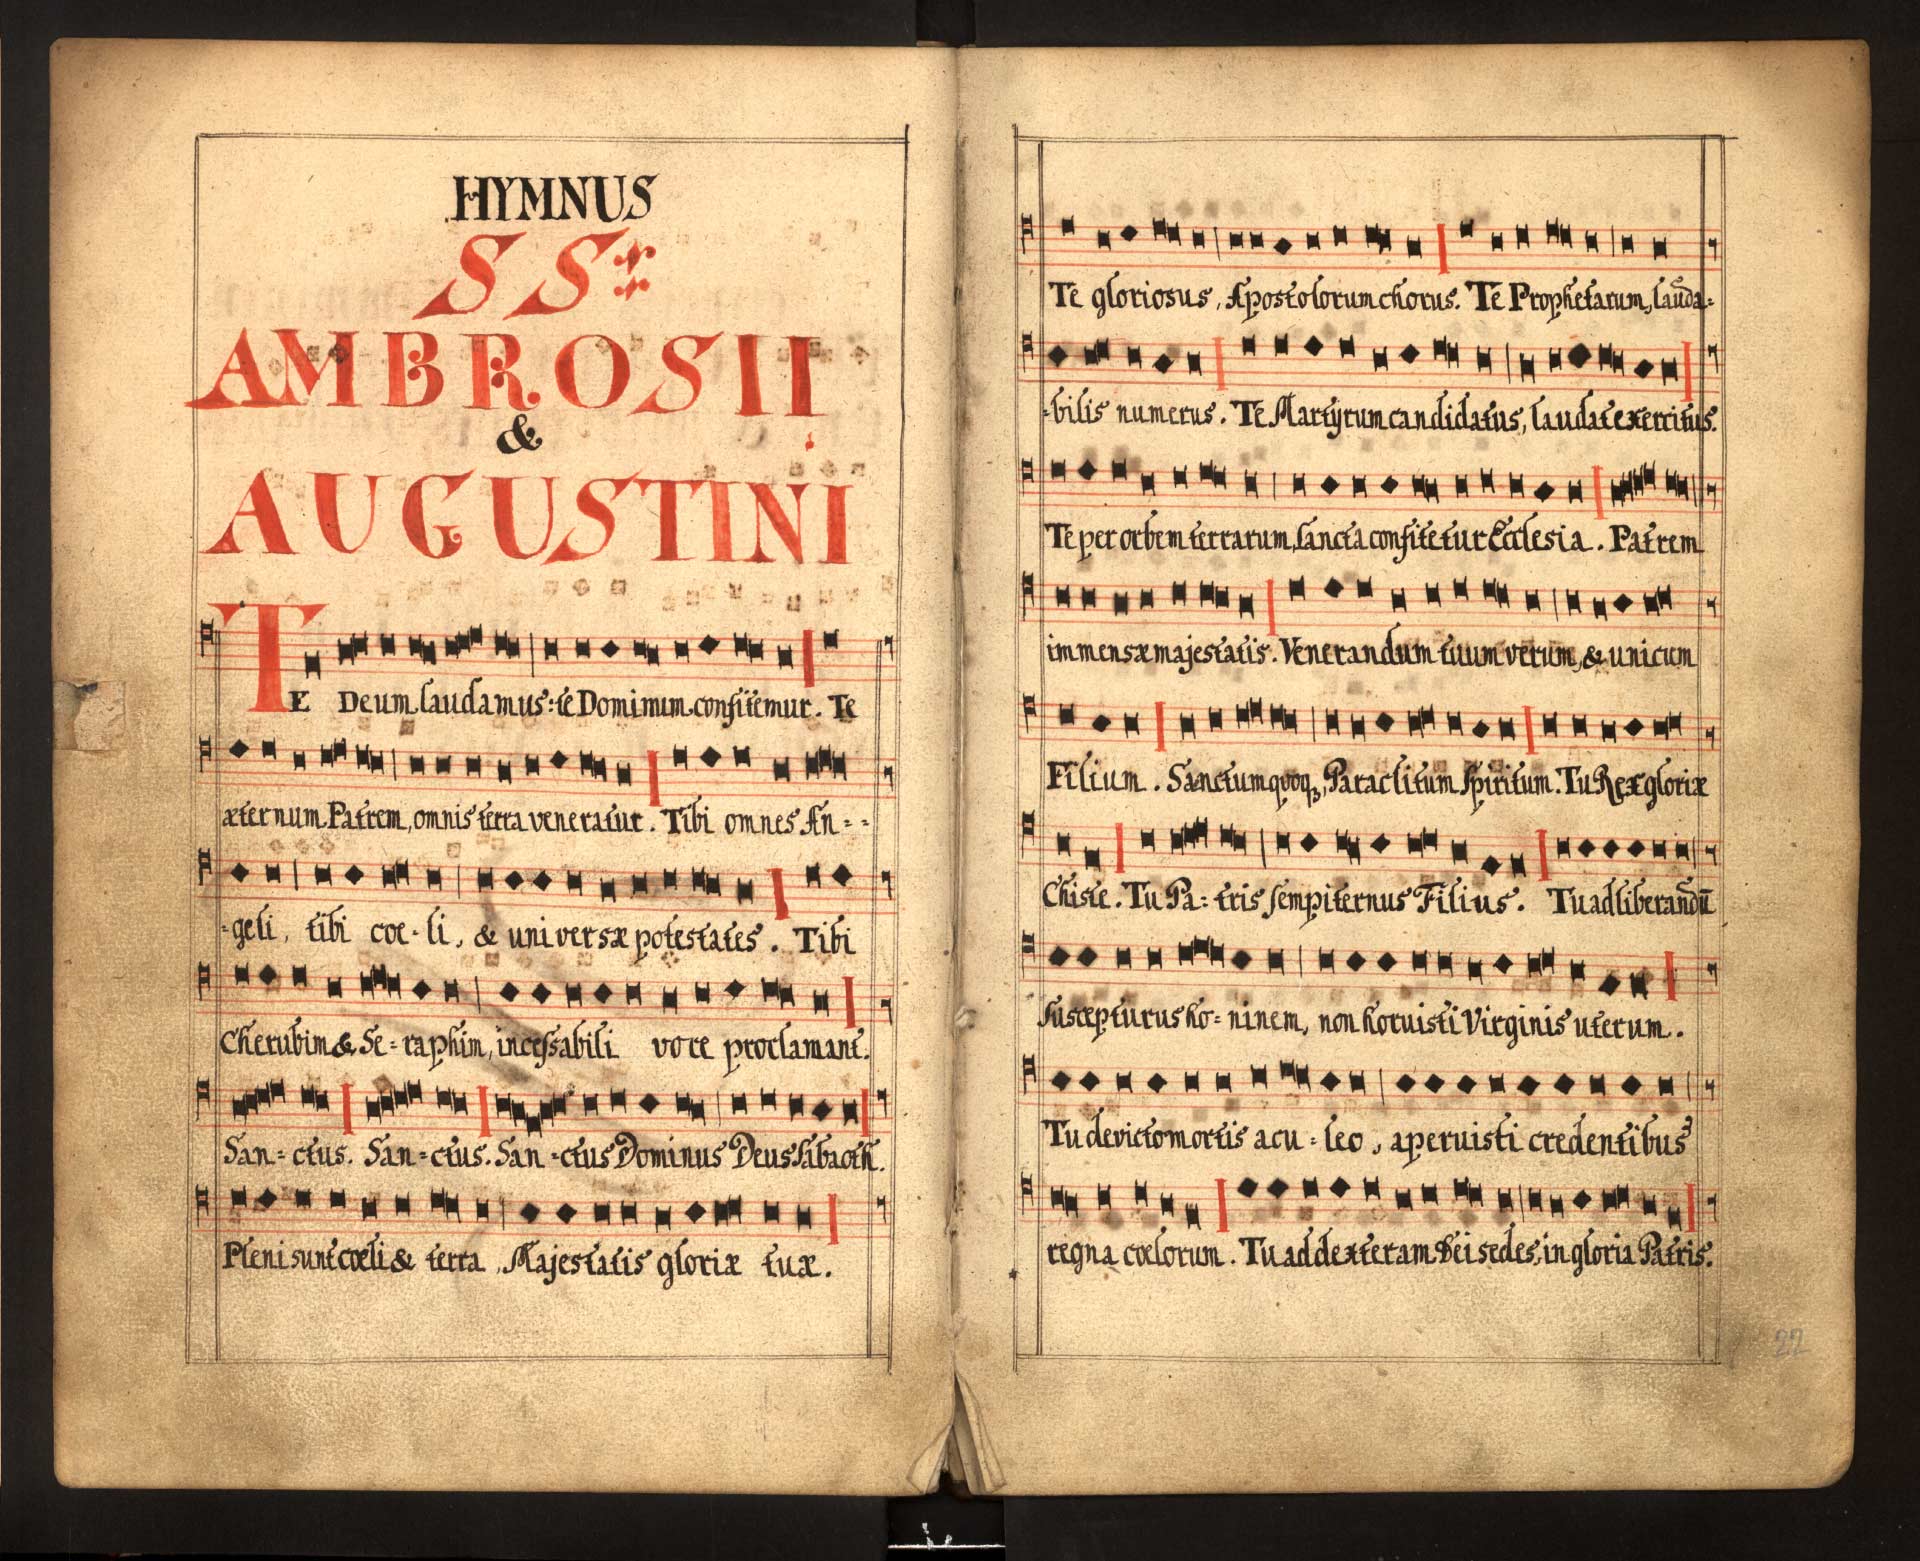 HYMNUS
SS:
AMBROSII
&
AUGUSTINI
TE Deum laudamus: te Dominum confitemur. Te
æternum Patrem, omnis terra veneratur. Tibi omnes An=-
-geli, tibi coe-li, & universæ potestates. Tibi
Cherubim & Se=raphim, incessabili voce proclamant.
San=ctus. San=ctus. San=ctus Dominus Deus Sabaoth.
Pleni sunt cœli & terra, Majestatis gloriæ tuæ.
Te gloriosus, Apostolorum chorus. Te Prophetarum, lauda=
-bilis numerus. Te Martyrum candidatus, laudat exercitus.
Te per orbem terrarum, sancta confitetur Ecclesia. Patrem
immensæ majestatis. Venerandum tuum verum, & unicum
Filium. Sanctum quoq3, Paraclitum Spiritum. Tu Rex gloriæ
Chiste. Tu Pa=tris sempiternus Filius. Tu ad liberandū
suscepturus ho=ninem, non horuisti Virginis uterum.
Tu devicto mortis acu=leo, aperuisti credentibus
regna cœlorum. Tu ad dexteram Dei sedes, in gloria Patris.
22